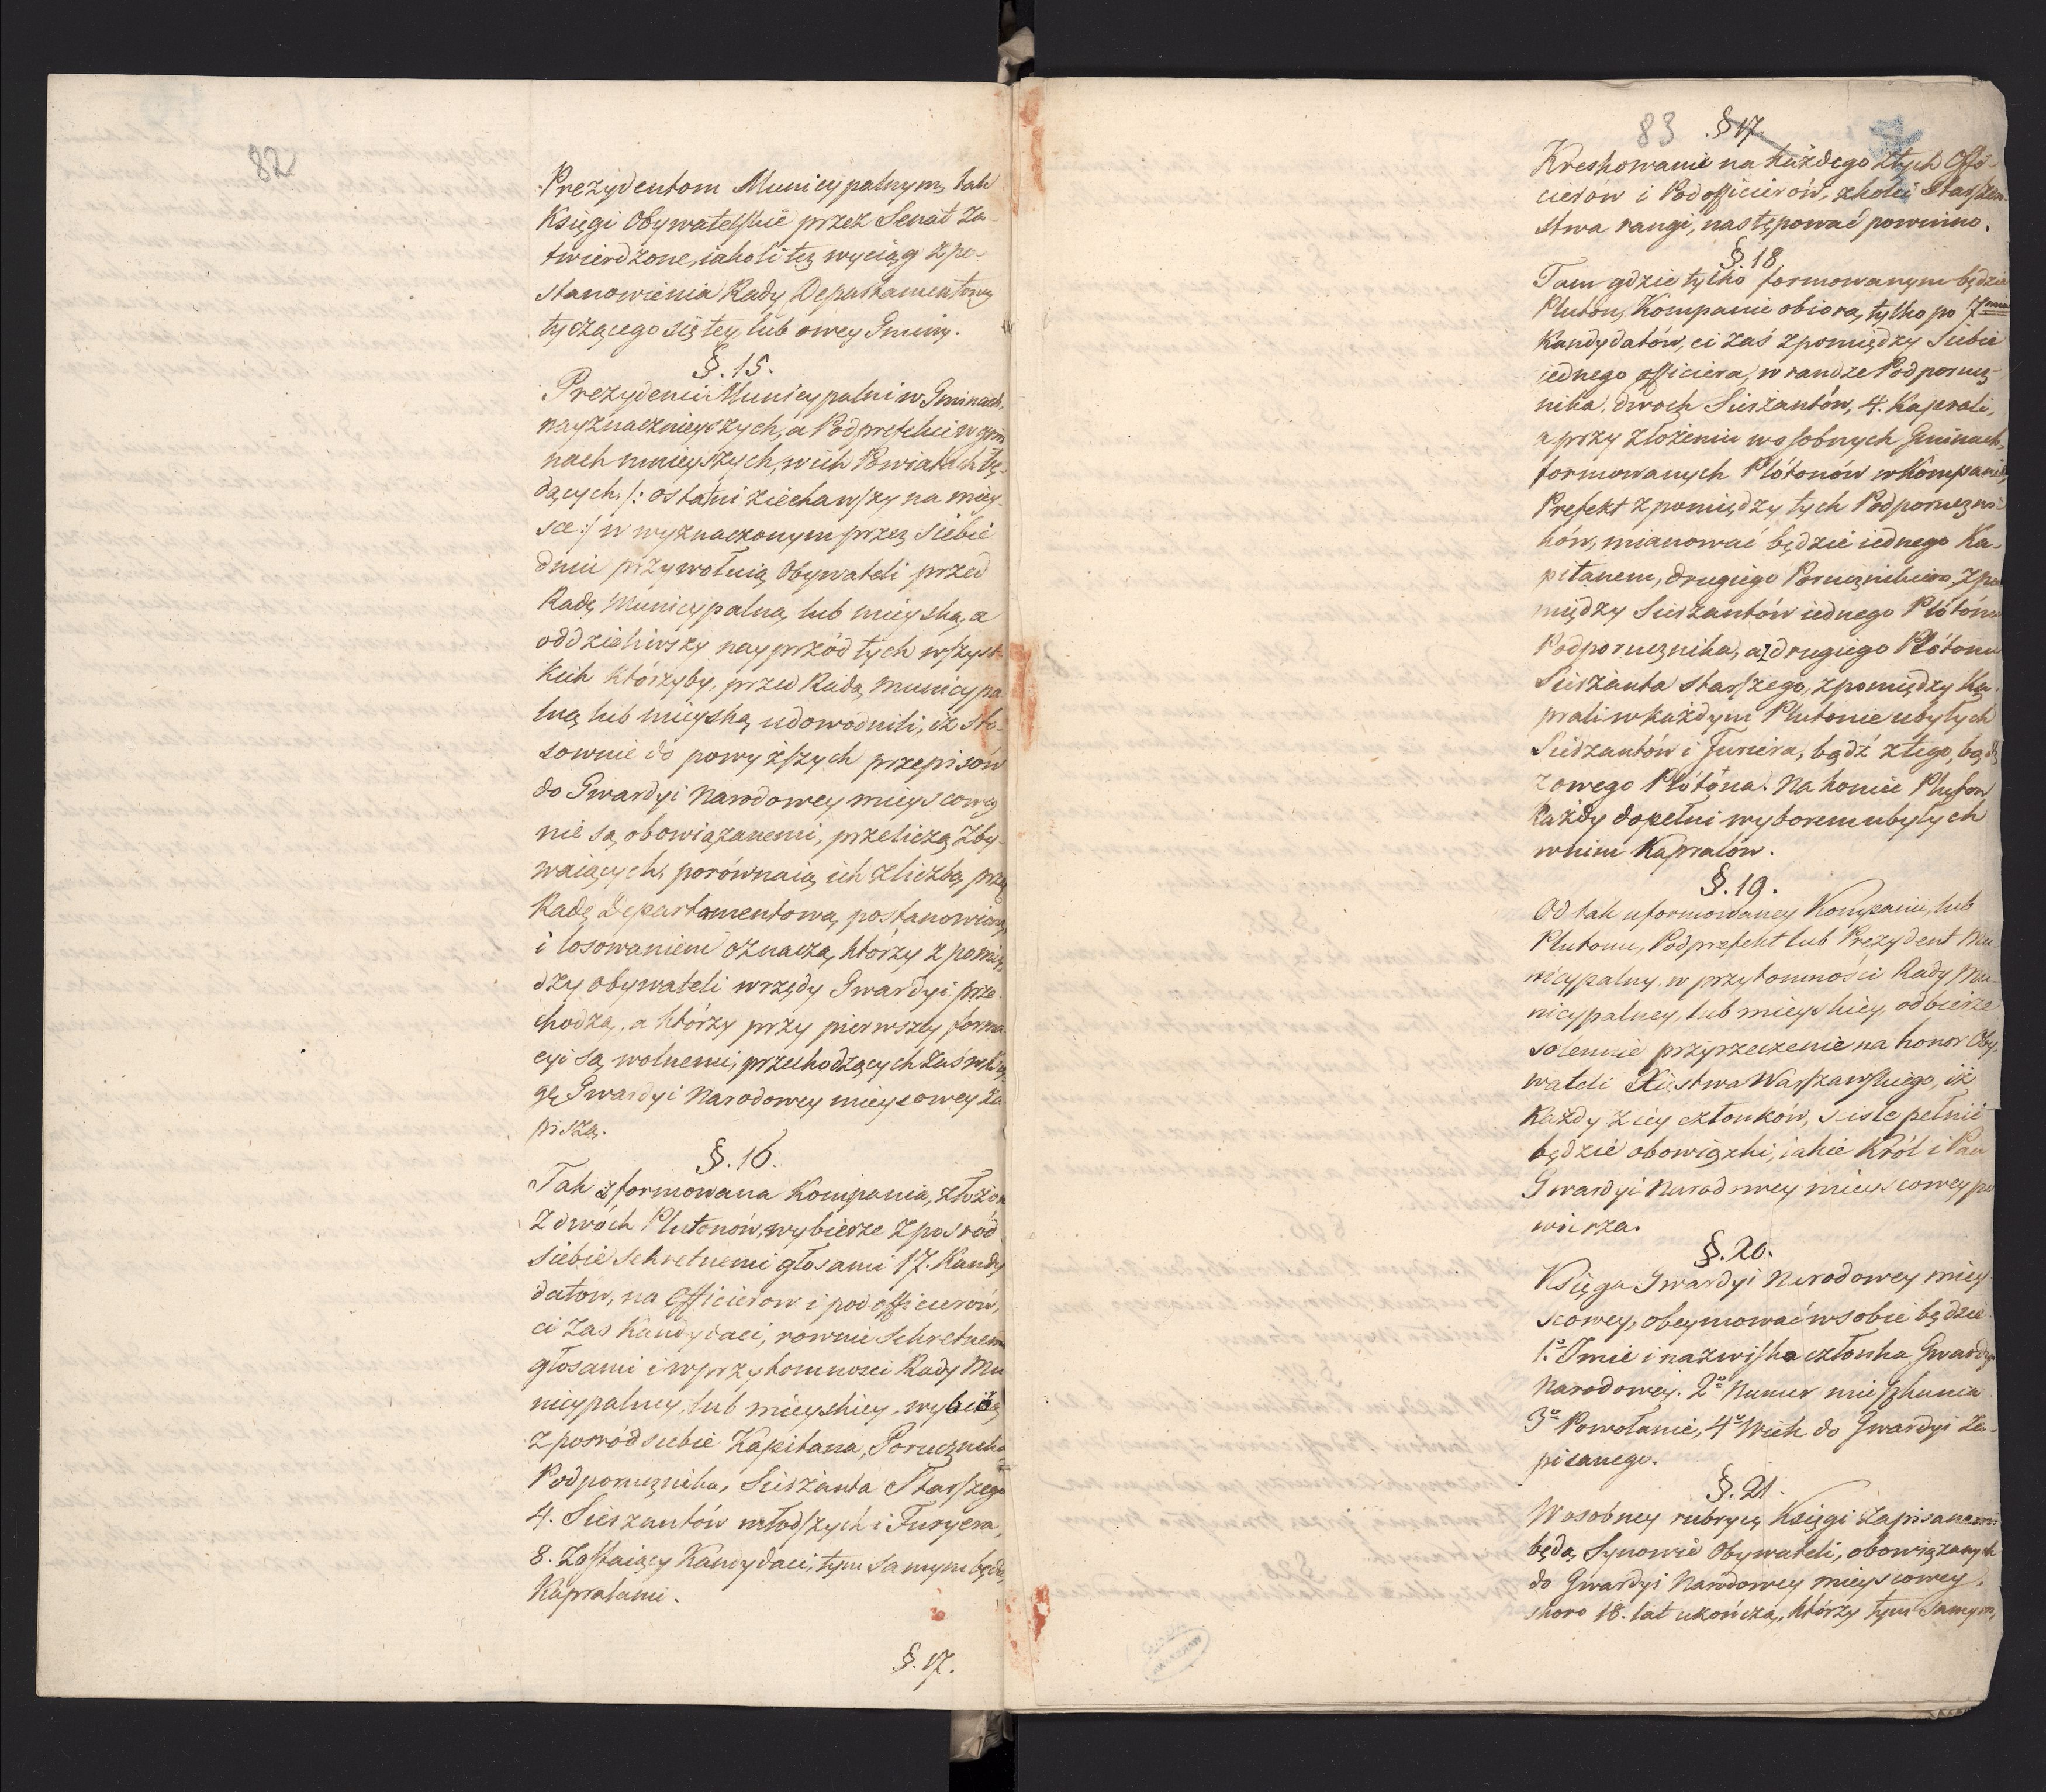 82
Prezydentom Municypalnym, tak
Księgi Obywatelskie przez Senat za-
twierdzone, iakoli też wyciąg z po-
stanowienia Rady Departamentowey
tyczącego się tey lub owey Gminy.
§. 15.
Prezydenci Municypalni w Gminach
nayznacznieyszych, a Podprefekci w gmi
nach mnieyszych, w ich Powiatach bę-
dących /: ostatni ziechawszy na miey-
sce :/ w wyznaczonym przez siebie
dniu przywołuią Obywateli przed
Radę Municypalną lub mieyską, a
oddzieliwszy nayprzód tych wszyst-
kich którzyby, przed Radą Municypa
lną lub mieyską udowodnili, iż sto-
sownie do powyższych przepisów
do Gwardyi Narodowey mieyscowey
nie są obowiązanemi, przeliczą zby-
waiących, porównaią ich z liczbą przez
Radę Departamentową postanowioną
i losowaniem oznaczą, którzy z pomię
dzy obywateli w rzędy Gwardyi prze-
chodzą, a którzy przy pierwszey forma
cyi są wolnemi, przechodzących zaś w Księ
gę Gwardyi Narodowey mieyscowey za
piszą.
§. 16.
Tak zformowana Kompania, złożona
z dwóch Plutonów, wybierze z pośród
siebie sekretnemi głosami 17. Kandy
datów, na Officierow i podofficierów,
ci zas Kandydaci, rownie sekretnemi
głosami i w przytomnosci Rady Mu
nicypalney, lub mieyskiey, wybiorą
z pośród siebie Kapitana, Porucznika
Podporucznika, Sierżanta Starszego
4. Sierzantów młodszych i Furyera,
8. Zostaiący Kandydaci, tym samym będą
Kapralami.
§. 17.
83 § 17.
Kreskowanie na każdego z tych Offi-
cierów i Podofficierów, z kolei Starszeń-
stwa rangi, następować powinno.
§. 18.
Tam gdzie tylko formowanym będzie
Pluton, Kompanie obiorą tylko po 7miu
Kandydatów, ci zaś z pomiędzy siebie
iednego officiera, w randze Podporucz-
nika, dwoch Sierżantów, 4. Kaprali,
a przy złożeniu w osobnych Gminach,
formowanych Plótonów w Kompanię,
Prefekt z pomiędzy tych Podporuczni-
ków, mianować będzie iednego Ka-
pitanem, drugiego Porucznikiem, z po
między Sierżantów iednego Plótonu
Podporucznika, a z drugiego Plótonu
Sierżanta starszego, z pomiędzy Ka-
prali w każdym Plutonie ubyłych
Sierżantów i Furiera, bądź z tego, bądź
z owego Plótóna. Na koniec Pluton
Każdy dopełni wyborem ubyłych
w nim Kapralów.
§. 19.
Od tak uformowaney Kompanii, lub
Plutonu, Podprefekt lub Prezydent Mu-
nicypalny w przytomności Rady Mu-
nicypalney, lub mieyskiey, odbierze
solennie przyrzeczenie na honor Oby-
wateli Xięstwa Warszawskiego, iż
Każdy z iey członków, ściśle pełnić
będzie obowiązki, iakie Król i Pan
Gwardyi Narodowey mieyscowey po
wierza.
§. 20.
Księga Gwardyi Narodowey miey-
scowey, obeymować w sobie będzie
1º Imie i nazwisko członka Gwardyi
Narodowey. 2º Numer mieszkania
3º Powołanie, 4º Wiek do Gwardyi za-
pisanego.
§. 21.
W osobney rubryce Księgi zapisanemi
będą Synowie Obywateli, obowiązanych
do Gwardyi Narodowey mieyscowey,
skoro 18. lat ukończą, którzy tym samym,